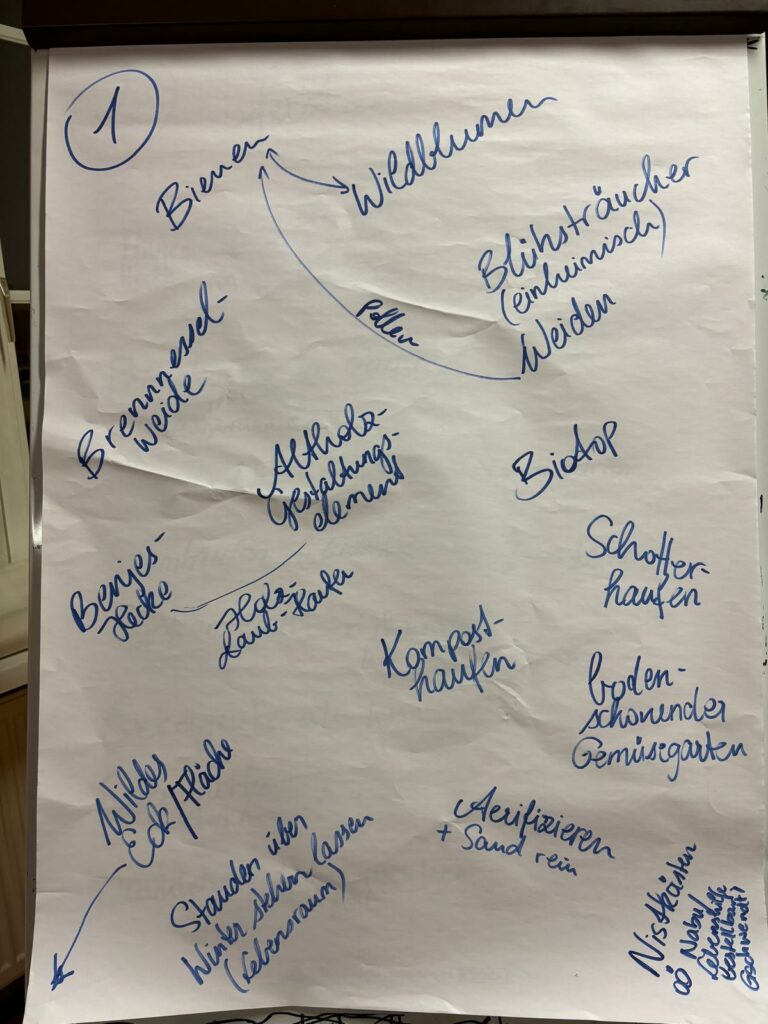 1
Bienen
Wildblumen
Blühsträucher
(einheimisch)
Weiden
Pollen
Brennnessel-
weide
Altholz-
Gestaltungs-
element
Biotop
Schotter-
haufen
Benjes-
Hecke
Holz-
Laub-Haufen
Kompost-
haufen
boden-
schonender
Gemüsegarten
Wildes
Eck/Fläche
Aerifizieren
+ Sand rein
Stauden über
Winter stehen lassen
(Lebensraum)
Nistkästen
Nabu/
Lebenshilfe
bestellbar